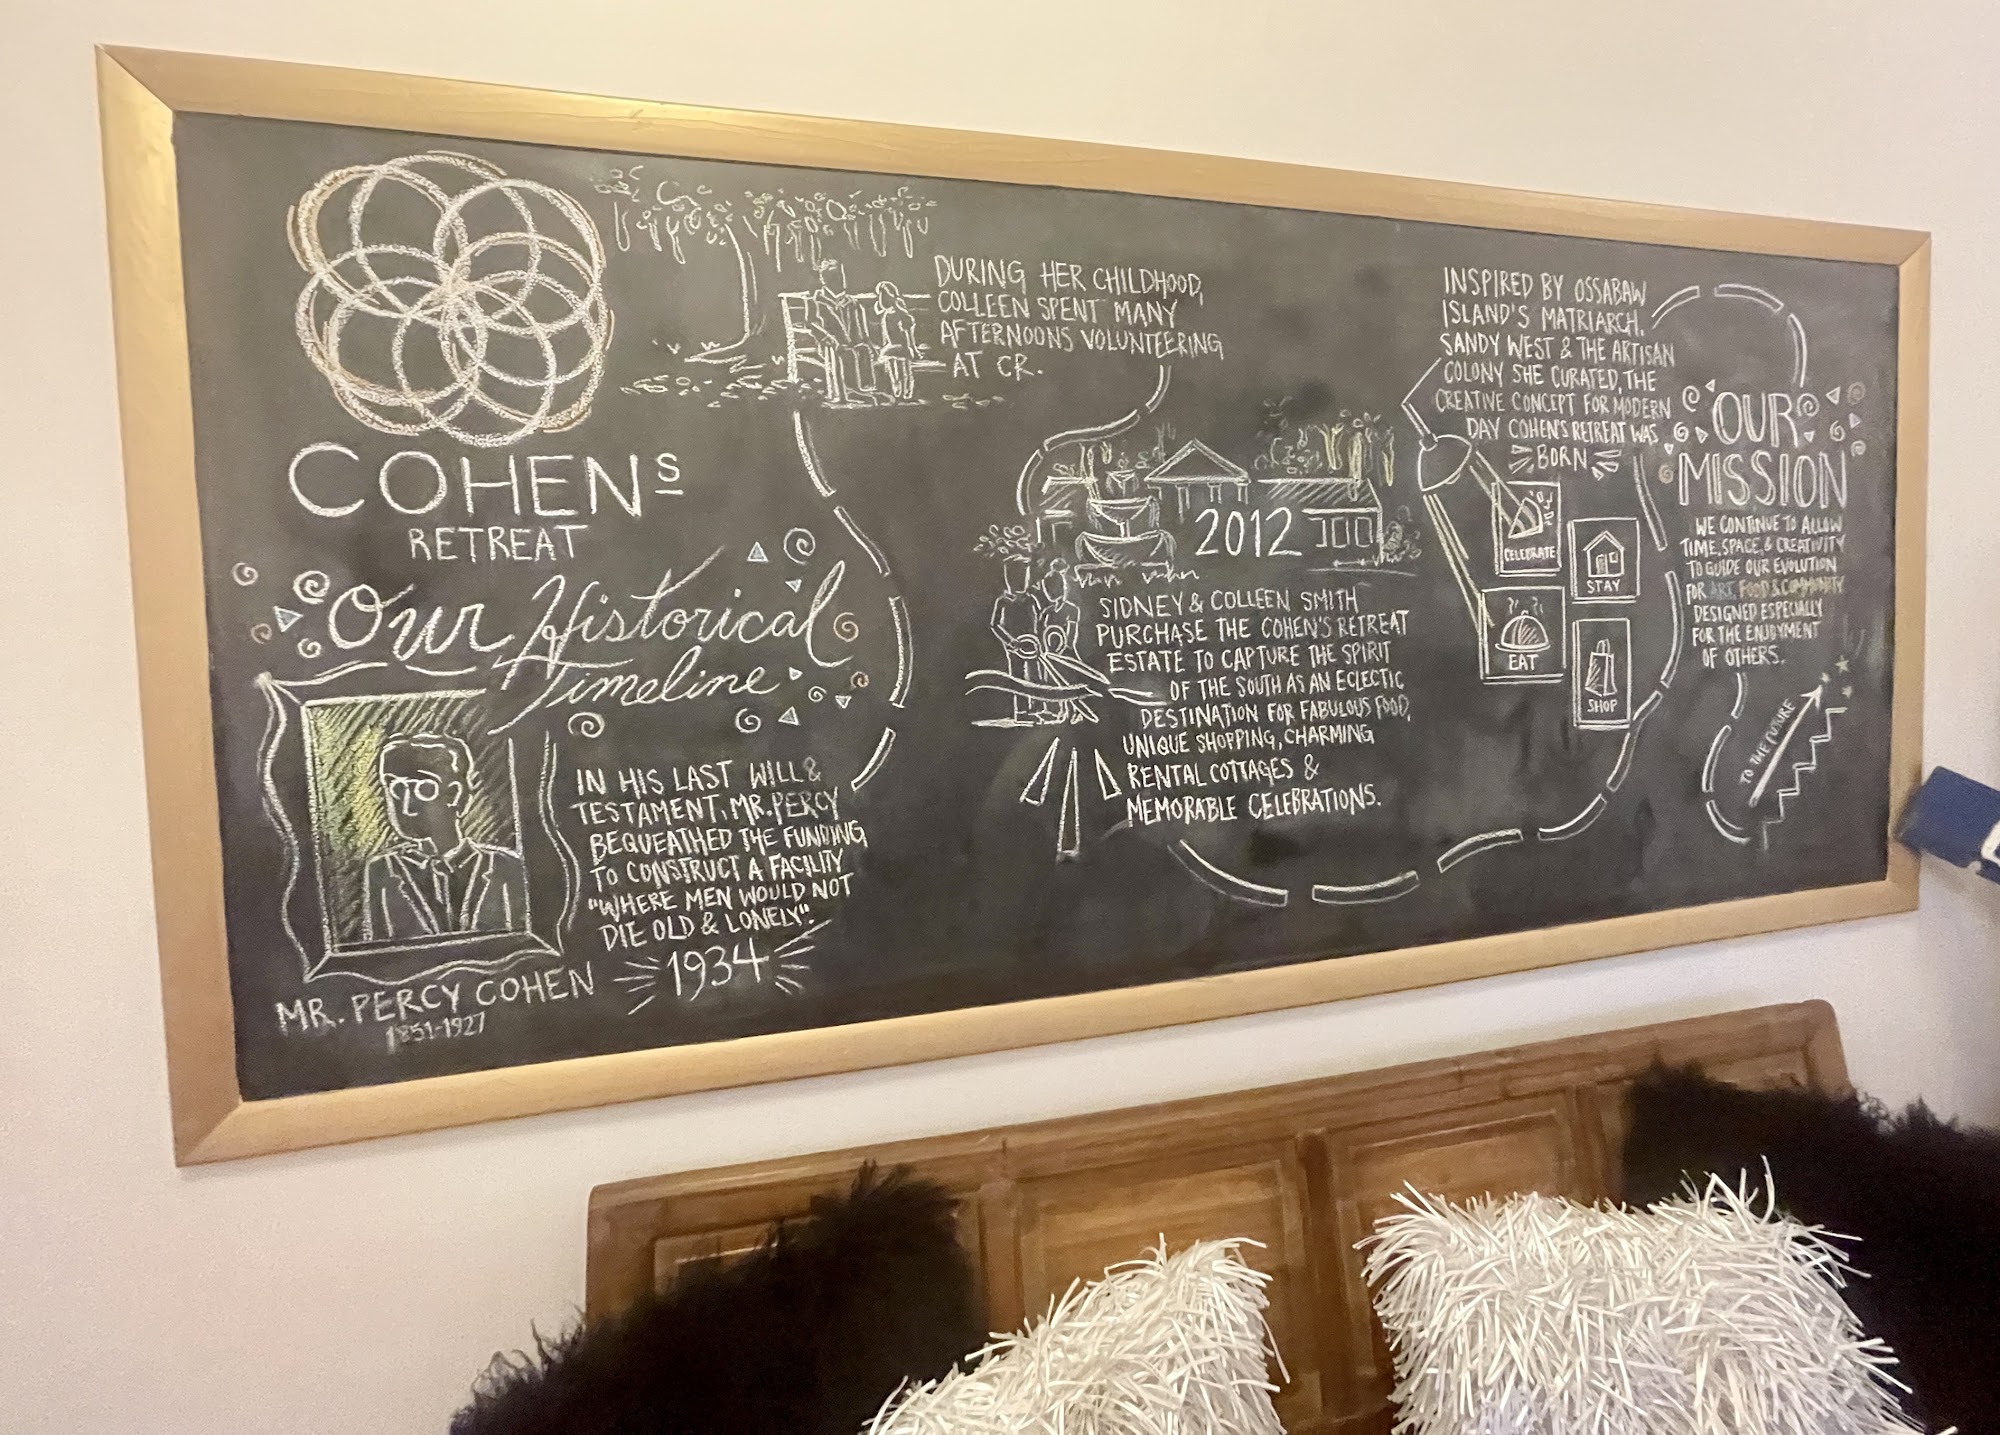 COHENS
RETREAT
Our Historical
Timeline
MR. PERCY COHEN
1851-1927
IN HIS LAST WILL &
TESTAMENT, MR. PERCY
BEQUEATHED THE FUNDING
TO CONSTRUCT A FACILITY
"WHERE MEN WOULD NOT
DIE OLD & LONELY".
1934
DURING HER CHILDHOOD,
COLLEEN SPENT MANY
AFTERNOONS VOLUNTEERING
AT CR.
2012
SIDNEY & COLLEEN SMITH
PURCHASE THE COHEN'S RETREAT
ESTATE TO CAPTURE THE SPIRIT
OF THE SOUTH AS AN ECLECTIC
DESTINATION FOR FABULOUS FOOD,
UNIQUE SHOPPING, CHARMING
RENTAL COTTAGES &
MEMORABLE CELEBRATIONS.
INSPIRED BY OSSABAW
ISLAND'S MATRIARCH,
SANDY WEST & THE ARTISAN
COLONY SHE CURATED, THE
CREATIVE CONCEPT FOR MODERN
DAY COHEN'S RETREAT WAS
BORN
CELEBRATE
STAY
EAT
SHOP
OUR
MISSION
WE CONTINUE TO ALLOW
TIME, SPACE, & CREATIVITY
TO GUIDE OUR EVOLUTION
FOR ART, FOOD & COMMUNITY
DESIGNED ESPECIALLY
FOR THE ENJOYMENT
OF OTHERS.
TO THE FUTURE